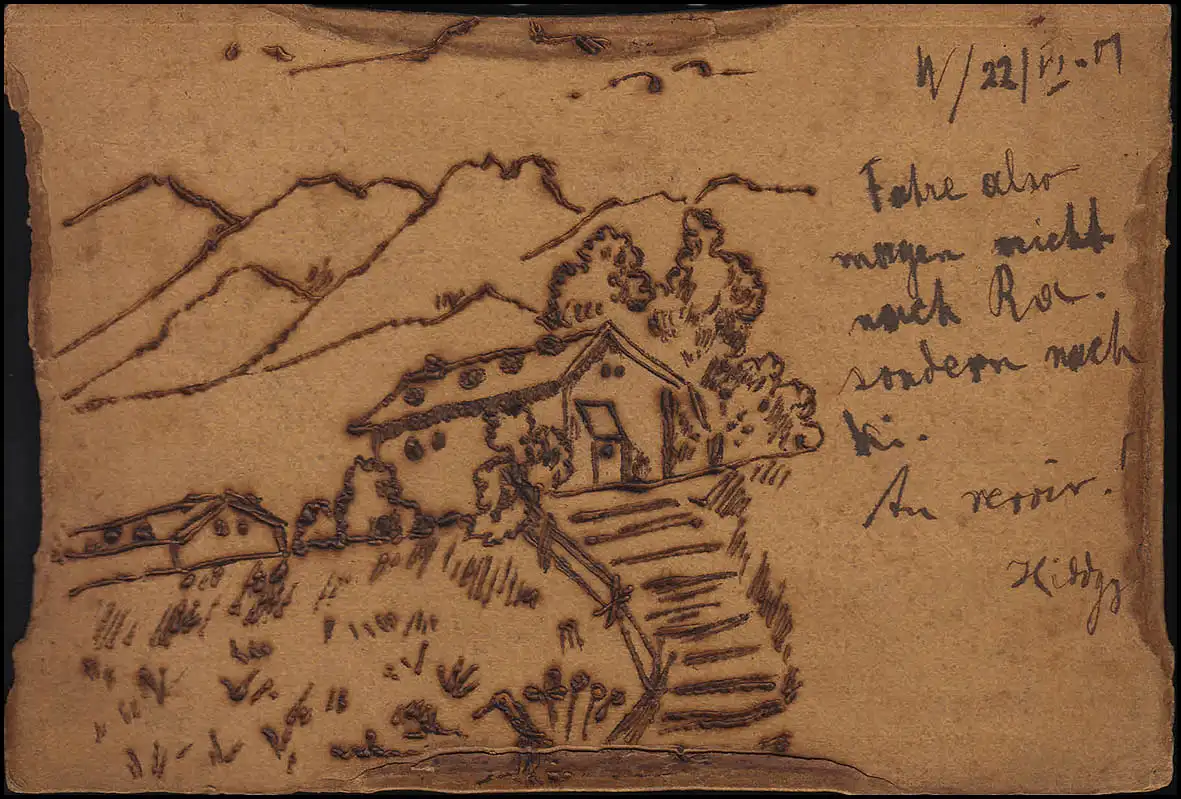 W/22/VI-
Fahre also
morgen nicht
nach Ra.
sondern nach
Ki.
Au revoir!